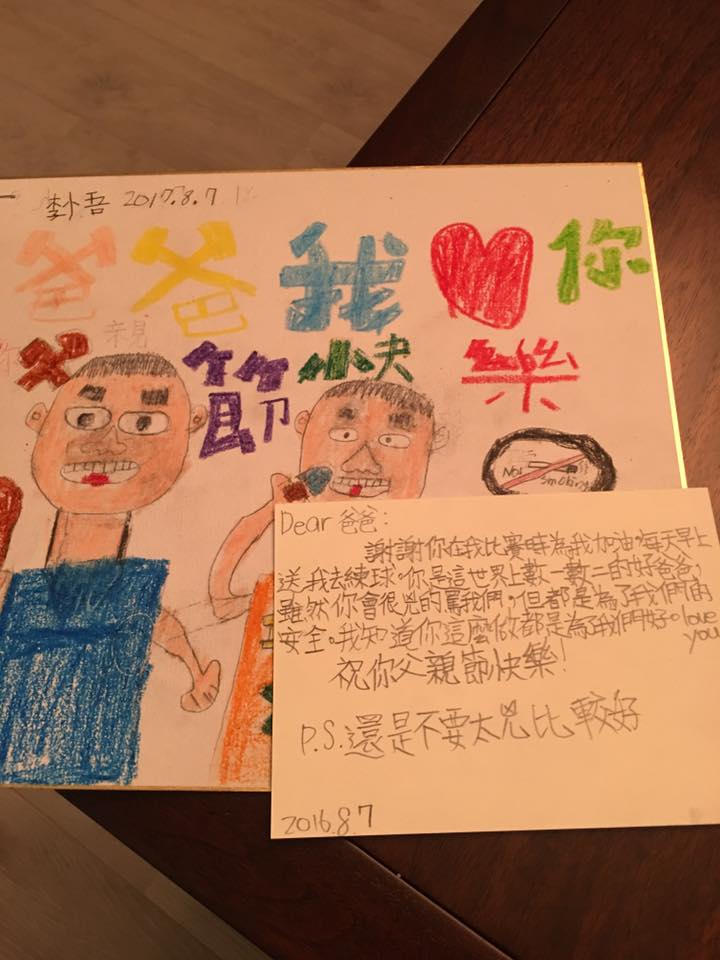 李小吾 2017.8.7
爸爸我 你
父 親
節快樂
No!
smoking
Dear 爸爸:
謝謝你在我比賽時為我加油,每天早上
送我去練球。你是這世界上數一數二的好爸爸,
雖然你會很兇的罵我們,但都是為了我們的
安全。我知道你這麼做都是為了我們好。love
you
祝你父親節快樂!
P.S.還是不要太兇比較好
2016.8.7